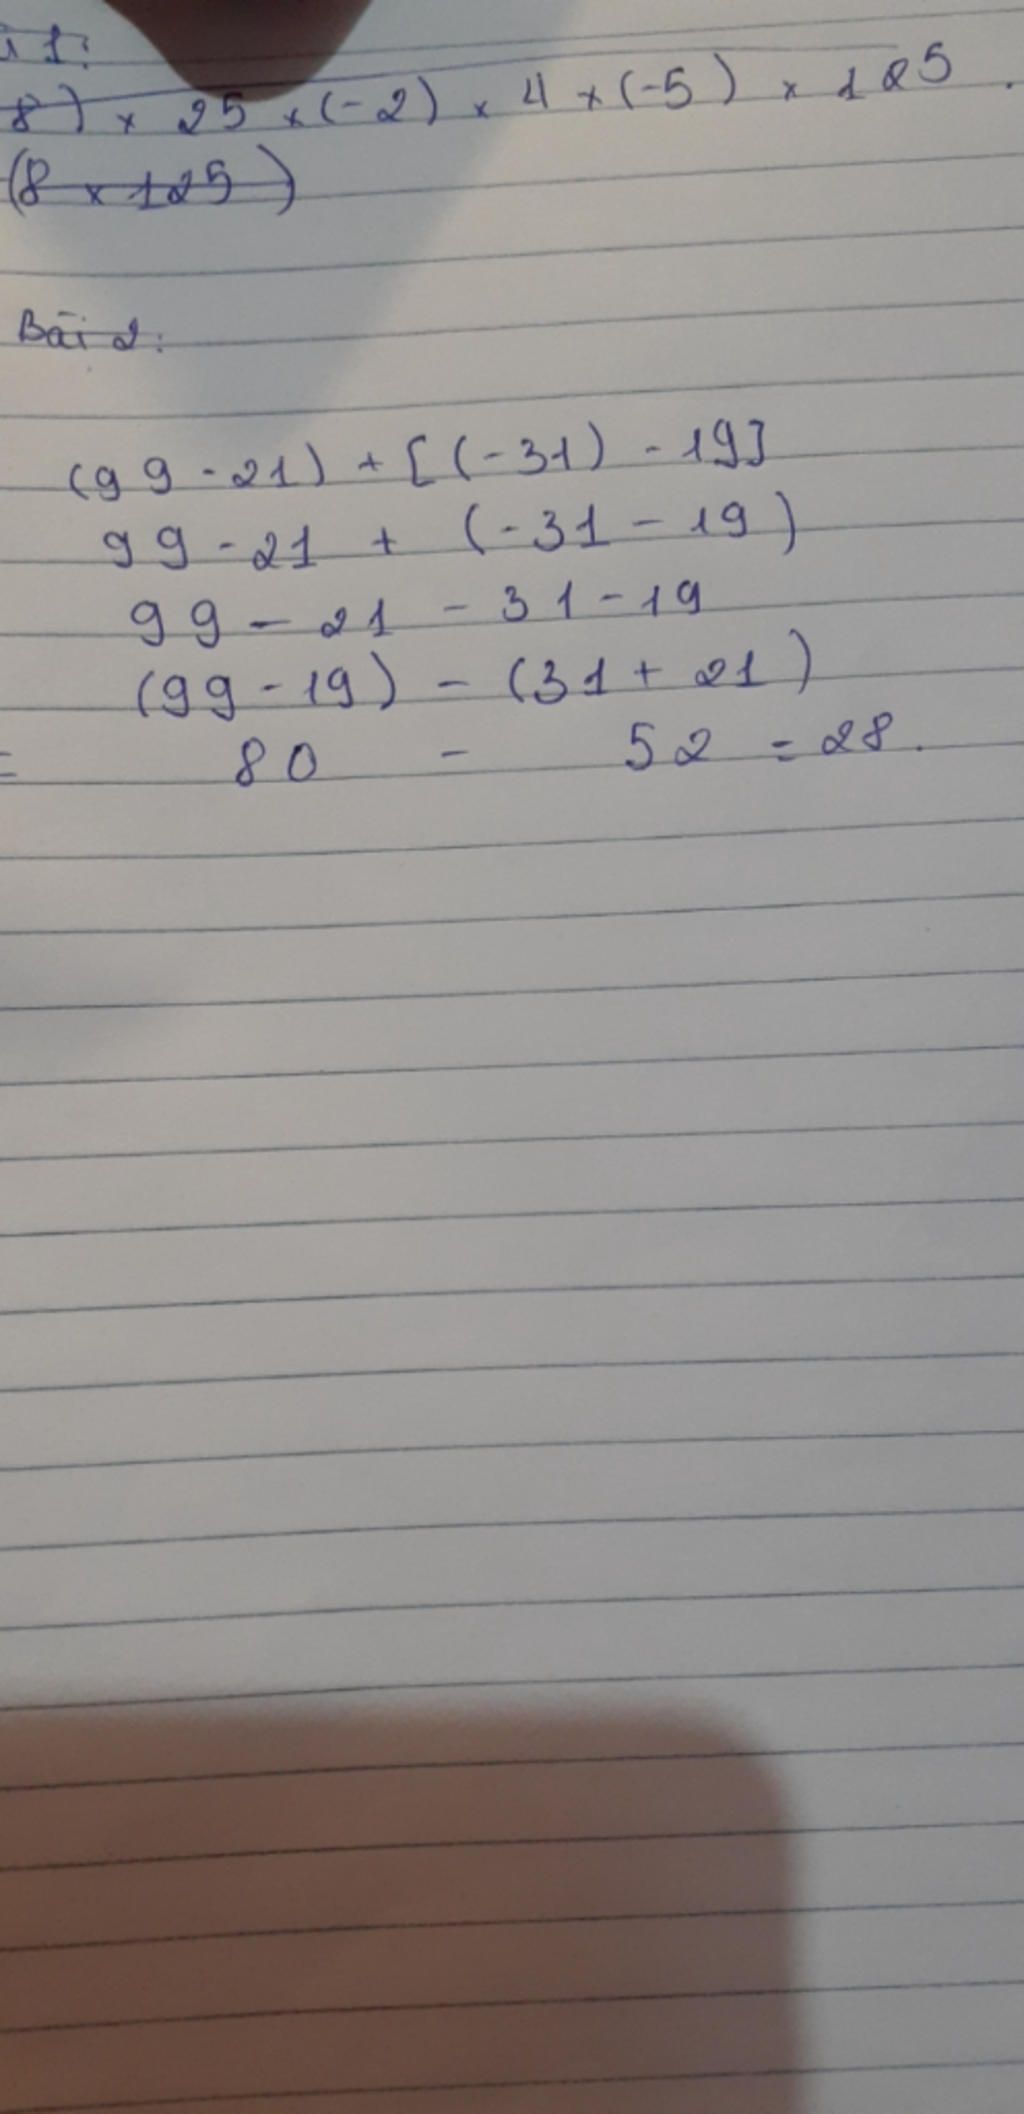 i 1:
8) × 25 × (-2) × 4 × (-5) × 125.
(8 × 125)
Bài 2:
(99 - 21) + [(-31) - 19]
99 - 21 + (-31 - 19)
99 - 21 - 31 - 19
(99 - 19) - (31 + 21)
= 80 - 52 = 28.